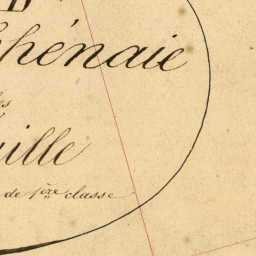 D
hénaie
les
uille
de 1ère classe